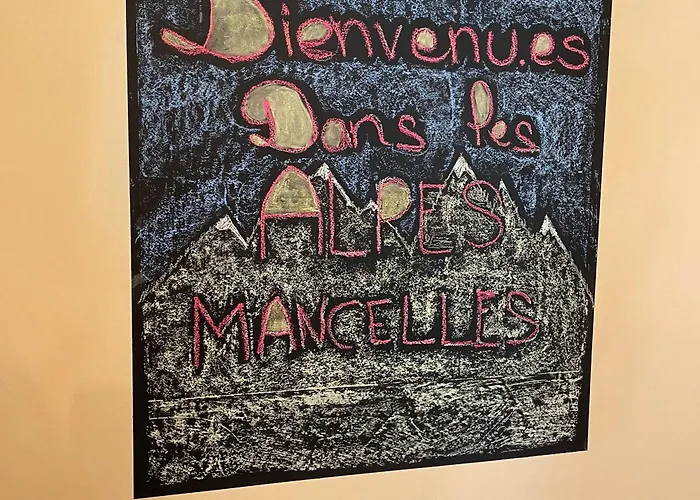 Bienvenu.es
Dans les
ALPES
MANCELLES